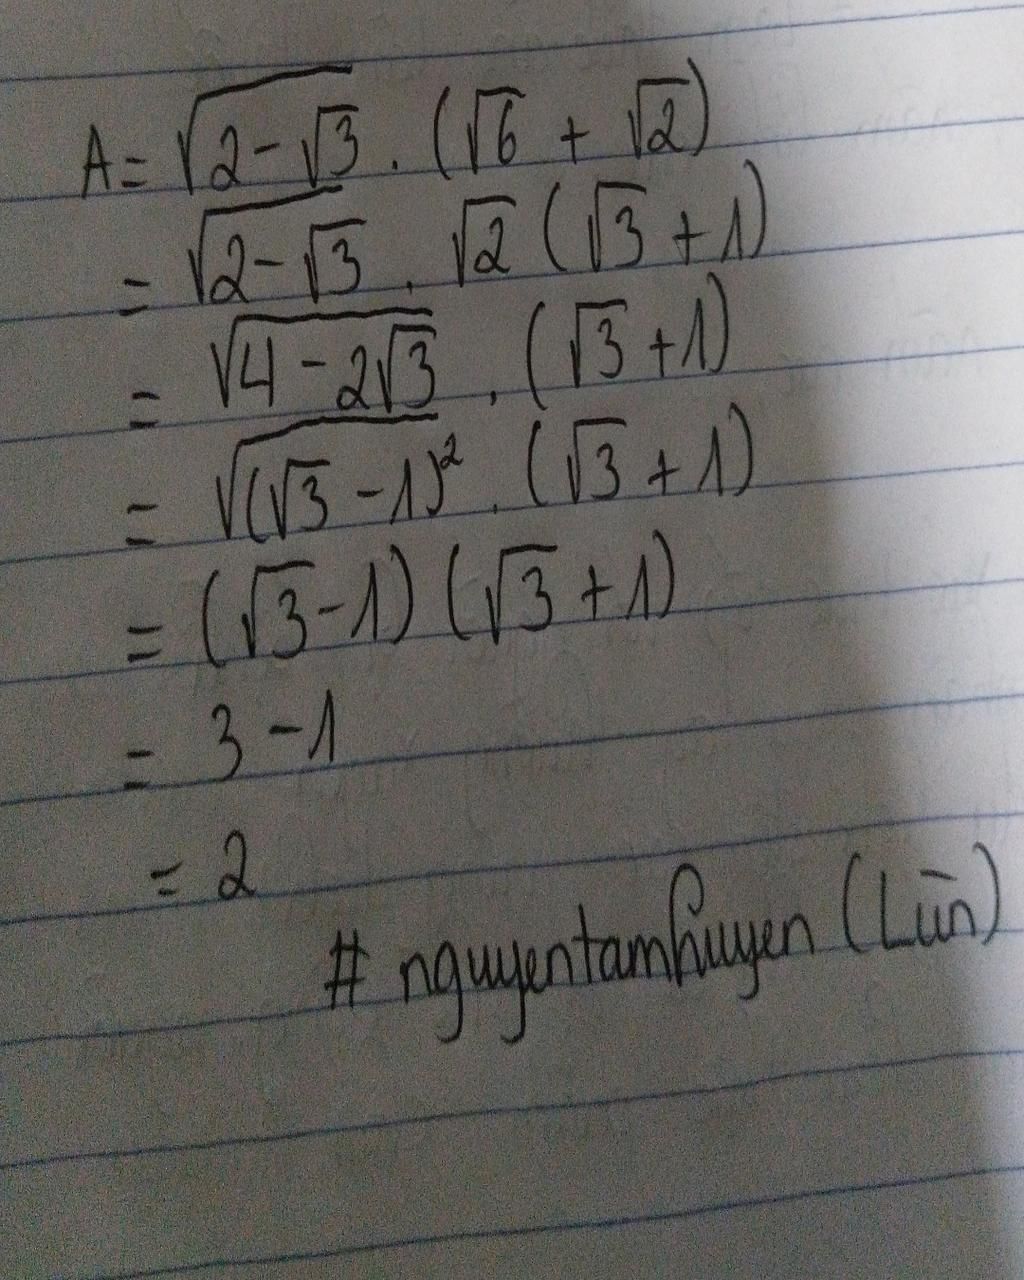 A = √(2-√3) . (√6 + √2)
= √(2-√3) . √2 (√3 + 1)
= √(4 - 2√3) . (√3 + 1)
= √((√3 - 1)²) . (√3 + 1)
= (√3 - 1) (√3 + 1)
= 3 - 1
= 2
# nguyentamhuyen (Lùn)